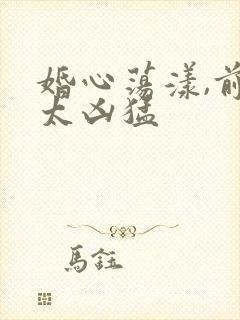 婚心荡漾,前
太凶猛
馬鈺